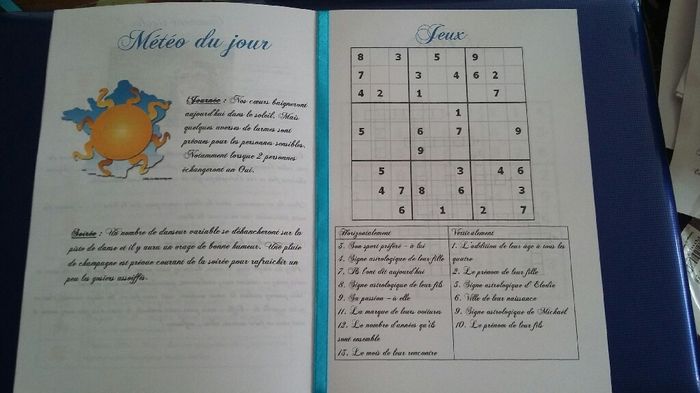 Météo du jour
Journée : Nos cœurs baigneront
aujourd'hui dans le soleil. Mais
quelques averses de larmes sont
prévues pour les personnes sensibles.
Notamment lorsque 2 personnes
échangeront un Oui.
Soirée : Un nombre de danseur variable se déhancheront sur la
piste de danse et il y aura un orage de bonne humeur. Une pluie
de champagne est prévue courant de la soirée pour rafraichir un
peu les gosiers assoiffés.
Jeux
8 3 5 9
7 3 4 6 2
4 2 1 7
1
5 6 7 9
9
5 3 4 6
4 7 8 6 3
6 1 2 7
Horizontalement
3. Son sport préféré - à lui
4. Signe astrologique de leur fille
7. Ils l'ont dit aujourd'hui
8. Signe astrologique de leur fils
9. Sa passion - à elle
11. La marque de leurs voitures
12. Le nombre d'années qu'ils
sont ensemble
13. Le mois de leur rencontre
Verticalement
1. L'addition de leur age à tous les
quatre
2. Le prénom de leur fille
5. Signe astrologique d'Elodie
6. Ville de leur naissance
9. Signe astrologique de Mickaël
10. Le prénom de leur fils